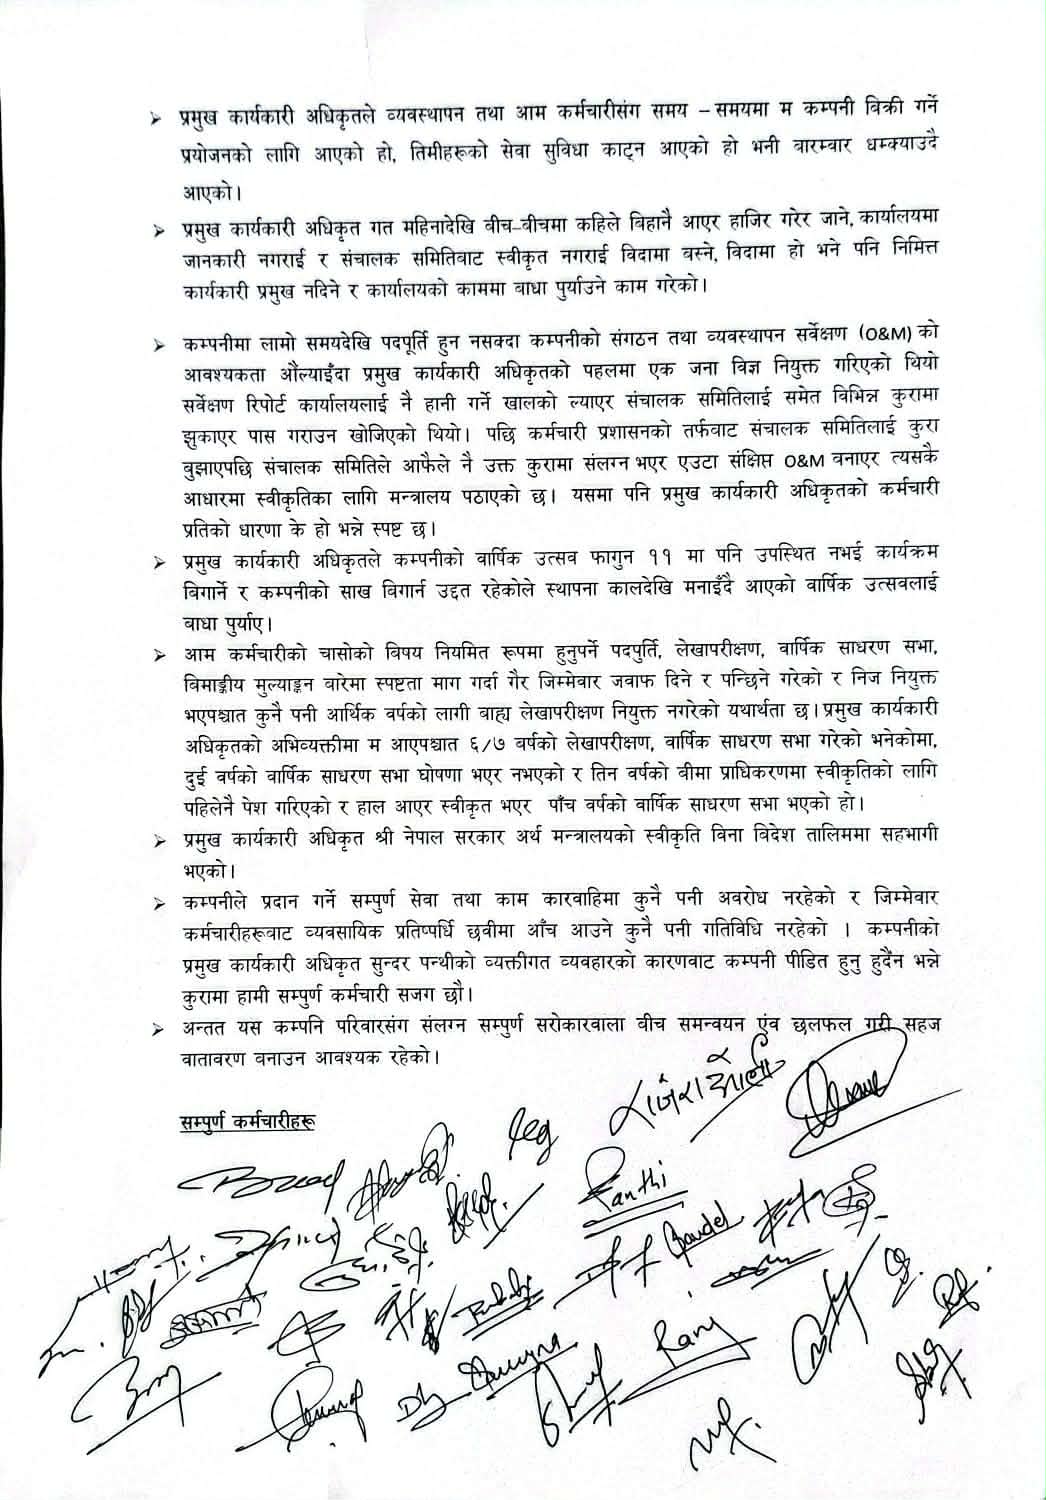 ➢ प्रमुख कार्यकारी अधिकृतले व्यवस्थापन तथा आम कर्मचारीसंग समय – समयमा म कम्पनी बिक्री गर्ने
प्रयोजनको लागि आएको हो, तिमीहरूको सेवा सुविधा काट्न आएको हो भनी वारम्वार धम्क्याउदै
आएको।
➢ प्रमुख कार्यकारी अधिकृत गत महिनादेखि बीच-बीचमा कहिले बिहानै आएर हाजिर गरेर जाने, कार्यालयमा
जानकारी नगराई र संचालक समितिबाट स्वीकृत नगराई विदामा वस्ने, विदामा हो भने पनि निमित्त
कार्यकारी प्रमुख नदिने र कार्यालयको काममा बाधा पुर्याउने काम गरेको।
➢ कम्पनीमा लामो समयदेखि पदपूर्ति हुन नसक्दा कम्पनीको संगठन तथा व्यवस्थापन सर्वेक्षण (O&M) को
आवश्यकता औल्याइँदा प्रमुख कार्यकारी अधिकृतको पहलमा एक जना विज्ञ नियुक्त गरिएको थियो
सर्वेक्षण रिपोर्ट कार्यालयलाई नै हानी गर्ने खालको ल्याएर संचालक समितिलाई समेत विभिन्न कुरामा
झुकाएर पास गराउन खोजिएको थियो। पछि कर्मचारी प्रशासनको तर्फबाट संचालक समितिलाई कुरा
वुझाएपछि संचालक समितिले आफैले नै उक्त कुरामा संलग्न भएर एउटा संक्षिप्त O&M वनाएर त्यसकै
आधारमा स्वीकृतिका लागि मन्त्रालय पठाएको छ। यसमा पनि प्रमुख कार्यकारी अधिकृतको कर्मचारी
प्रतिको धारणा के हो भन्ने स्पष्ट छ।
➢ प्रमुख कार्यकारी अधिकृतले कम्पनीको वार्षिक उत्सव फागुन ११ मा पनि उपस्थित नभई कार्यक्रम
विगार्ने र कम्पनीको साख विगार्न उद्दत रहेकोले स्थापना कालदेखि मनाइँदै आएको वार्षिक उत्सवलाई
वाधा पुर्याए।
➢ आम कर्मचारीको चासोको विषय नियमित रूपमा हुनुपर्ने पदपुर्ति, लेखापरीक्षण, वार्षिक साधरण सभा,
विमाङ्कीय मुल्याङ्कन वारेमा स्पष्टता माग गर्दा गैर जिम्मेवार जवाफ दिने र पन्छिने गरेको र निज नियुक्त
भएपश्चात कुनै पनी आर्थिक वर्षको लागी वाह्य लेखापरीक्षण नियुक्त नगरेको यथार्थता छ। प्रमुख कार्यकारी
अधिकृतको अभिव्यक्तीमा म आएपश्चात ६/७ वर्षको लेखापरीक्षण, वार्षिक साधरण सभा गरेको भनेकोमा,
दुई वर्षको वार्षिक साधरण सभा घोषणा भएर नभएको र तिन वर्षको बीमा प्राधिकरणमा स्वीकृतिको लागि
पहिलेनै पेश गरिएको र हाल आएर स्वीकृत भएर पाँच वर्षको वार्षिक साधरण सभा भएको हो।
➢ प्रमुख कार्यकारी अधिकृत श्री नेपाल सरकार अर्थ मन्त्रालयको स्वीकृति विना विदेश तालिममा सहभागी
भएको।
➢ कम्पनीले प्रदान गर्ने सम्पुर्ण सेवा तथा काम कारवाहिमा कुनै पनी अवरोध नरहेको र जिम्मेवार
कर्मचारीहरूवाट व्यवसायिक प्रतिष्पर्धि छवीमा आँच आउने कुनै पनी गतिविधि नरहेको । कम्पनीको
प्रमुख कार्यकारी अधिकृत सुन्दर पन्थीको व्यक्तीगत व्यवहारको कारणवाट कम्पनी पीडित हुनु हुदैन भन्ने
कुरामा हामी सम्पुर्ण कर्मचारी सजग छौ।
➢ अन्तत यस कम्पनि परिवारसंग संलग्न सम्पुर्ण सरोकारवाला बीच समन्वयन एंव छलफल गरी सहज
वातावरण वनाउन आवश्यक रहेको।
सम्पुर्ण कर्मचारीहरू
Panthi